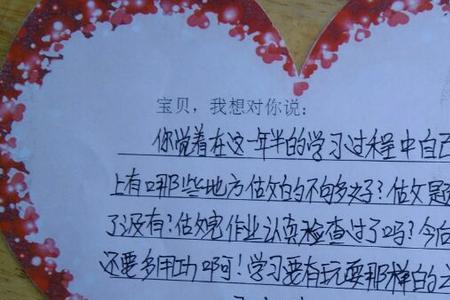 宝贝，我想对你说：
你觉着在这一年半的学习过程中自己
上有哪些地方做的不句多好？做题
了没有？做完作业认真检查过了吗？今后
还要多用功啊！学习要有玩耍那样的